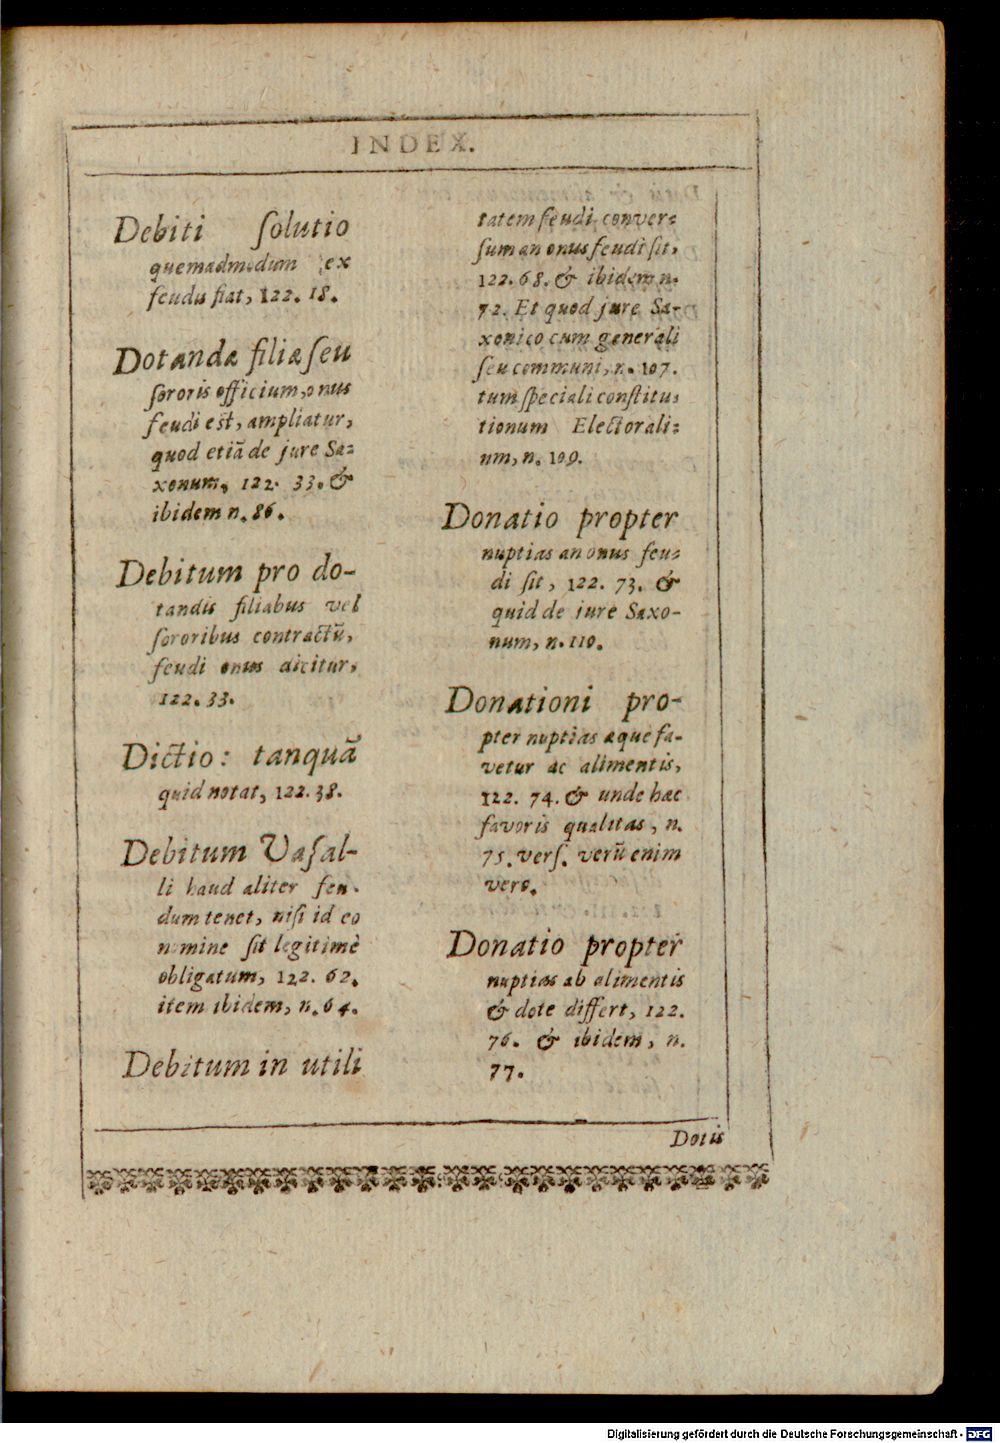 INDEX.
Debiti ſolutio
quemadmodum ex
feudu fiat, 122. 18.
Dotandæ filiæ ſeu
ſororis officium, onus
feudi eſt, ampliatur,
quod etiã de jure Sa-
xonum, 122. 33. &
ibidem n. 86.
Debitum pro do-
tandis filiabus vel
ſororibus contractũ,
feudi onus dicitur,
122. 33.
Dictio: tanquã
quid notat, 122. 38.
Debitum Vaſal-
li haud aliter feu-
dum tenet, niſi id eo
nomine ſit legitimè
obligatum, 122. 62.
item ibidem, n. 64.
Debitum in utili
tatem feudi conver-
ſum an onus feudi ſit,
122. 68. & ibidem n.
72. Et quod jure Sa-
xonico cum generali
ſeu communi, n. 107.
tum ſpeciali conſtitu-
tionum Electorali-
um, n. 109.
Donatio propter
nuptias an onus feu-
di ſit, 122. 73. &
quid de jure Saxo-
num, n. 110.
Donationi pro-
pter nuptias æque fa-
vetur ac alimentis,
122. 74. & unde hæc
favoris qualitas, n.
75. verſ. verũ enim
vero.
Donatio propter
nuptias ab alimentis
& dote differt, 122.
76. & ibidem, n.
77.
Dotis
Digitalisierung gefördert durch die Deutsche Forschungsgemeinschaft - DFG